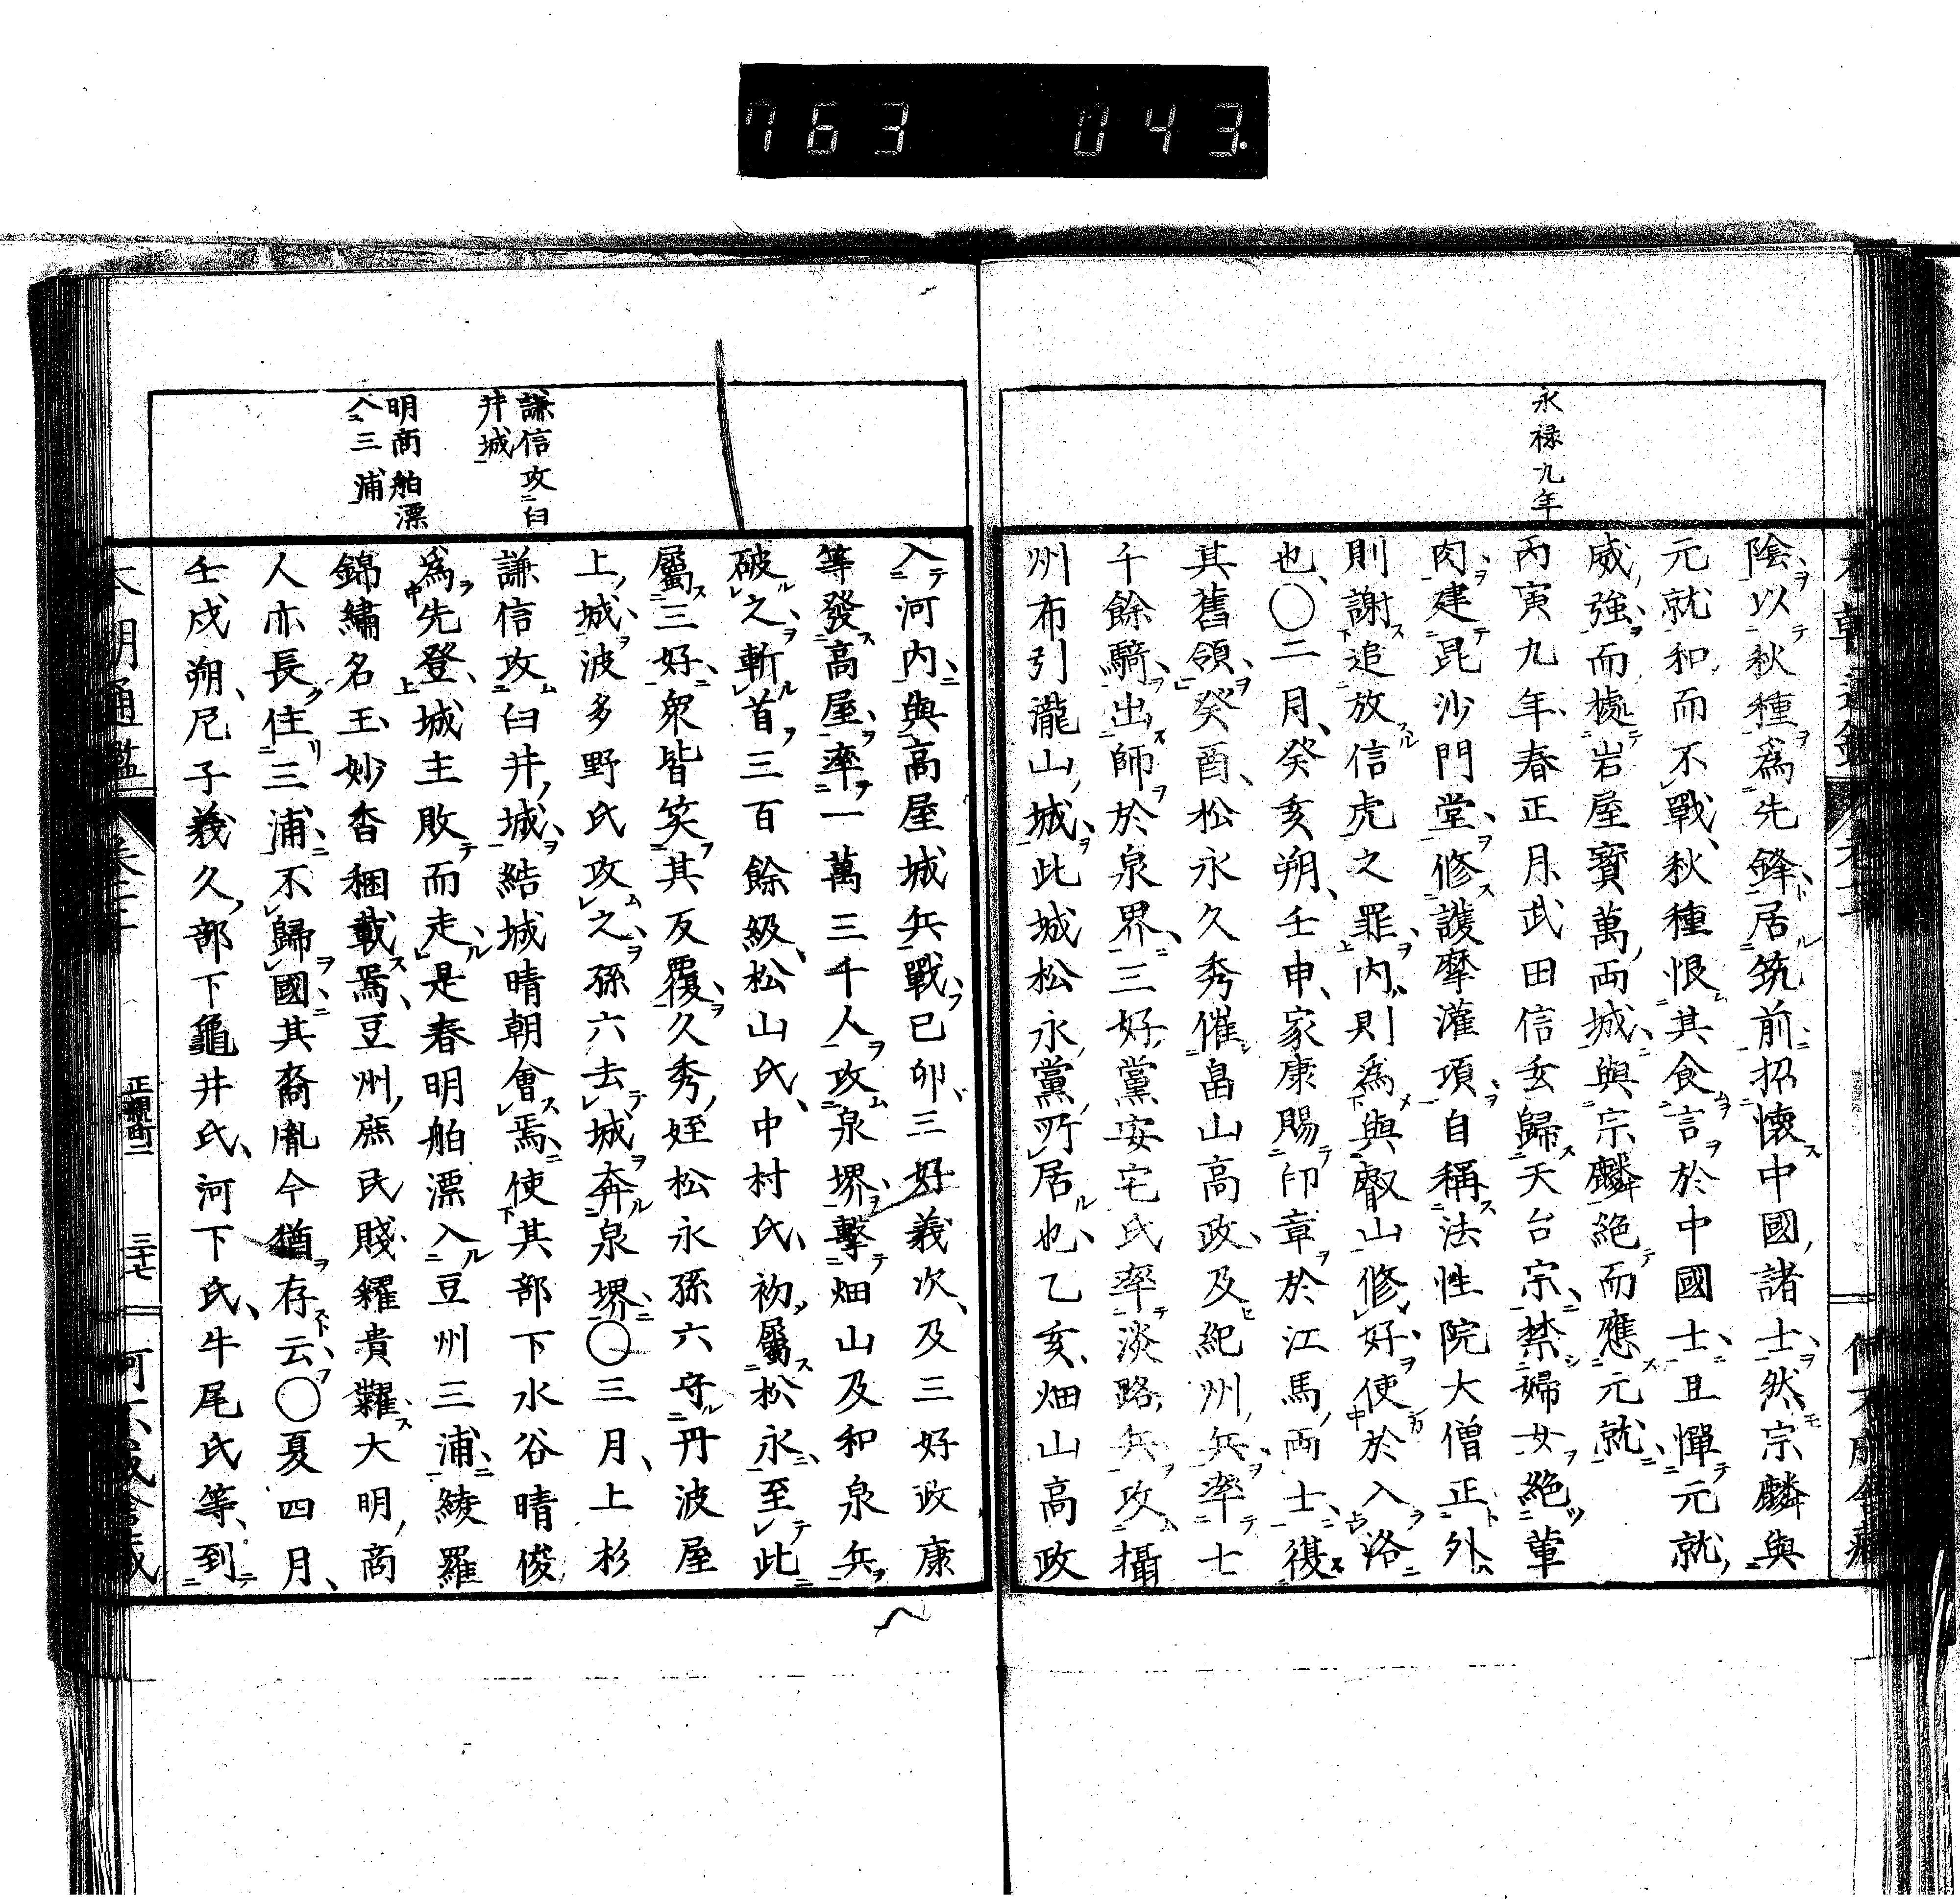 763 043.
永禄九年
陰以秋種爲先鋒居筑前招懷中國諸士然宗麟與
元就和而不戰秋種恨其食言於中國士且憚元就
威強而據岩屋寳萬兩城與宗麟絶而應元就
丙寅九年春正月武田信玄歸天台宗禁婦女絶葷
肉建毘沙門堂修護摩灌頂自稱法性院大僧正外
則謝追放信虎之罪内則爲與叡山修好使於入洛
也○二月癸亥朔壬申家康賜印章於江馬兩士復
其舊領癸酉松永久秀催畠山高政及紀州兵率士
千餘騎出師於泉界三好黨安宅氏率淡路兵攻攝
州布引瀧山城此城松永黨所居也乙亥畑山高政
謙信攻臼
井城
明商舶漂
入三浦
入河内與高屋城兵戰已卯三好義次及三好政康
等發高屋率一萬三千人攻泉堺擊畑山及和泉兵
破之斬首三百餘級松山氏中村氏初屬松永至此
屬三好衆皆笑其反覆久秀姪松永孫六守丹波屋
上城波多野氏攻之孫六去城奔泉堺○三月上杉
謙信攻臼井城結城晴朝會焉使其部下水谷晴俊
爲先登城主敗而走是春明舶漂入豆州三浦綾羅
錦繡名玉妙香稛載焉豆州庶民賤糴貴糶大明商
人亦長住三浦不歸國其裔胤今猶存云○夏四月
壬戌朔尼子義久部下龜井氏河下氏牛尾氏等到
本朝通鑑
正親町二
三十七